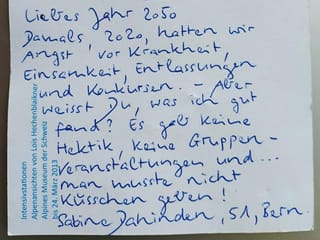 Liebes Jahr 2050
Damals, 2020, hatten wir
Angst vor Krankheit,
Einsamkeit, Entlassungen
und Konkursen. – Aber
weisst Du, was ich gut
fand? Es gab keine
Hektik, keine Gruppen-
veranstaltungen und...
man musste nicht
Küsschen geben!
Sabine Dahinden, 51, Bern.
Intensivstationen
Alpenansichten von Lois Hechenblaikner
Alpines Museum der Schweiz
bis 24. März 2013